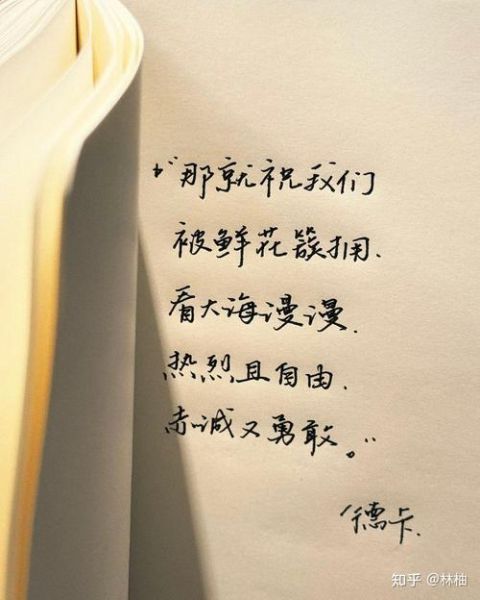 “那就祝我们
被鲜花簇拥.
看大海漫漫.
热烈且自由.
赤诚又勇敢。”
德卡.
知乎 @林柚